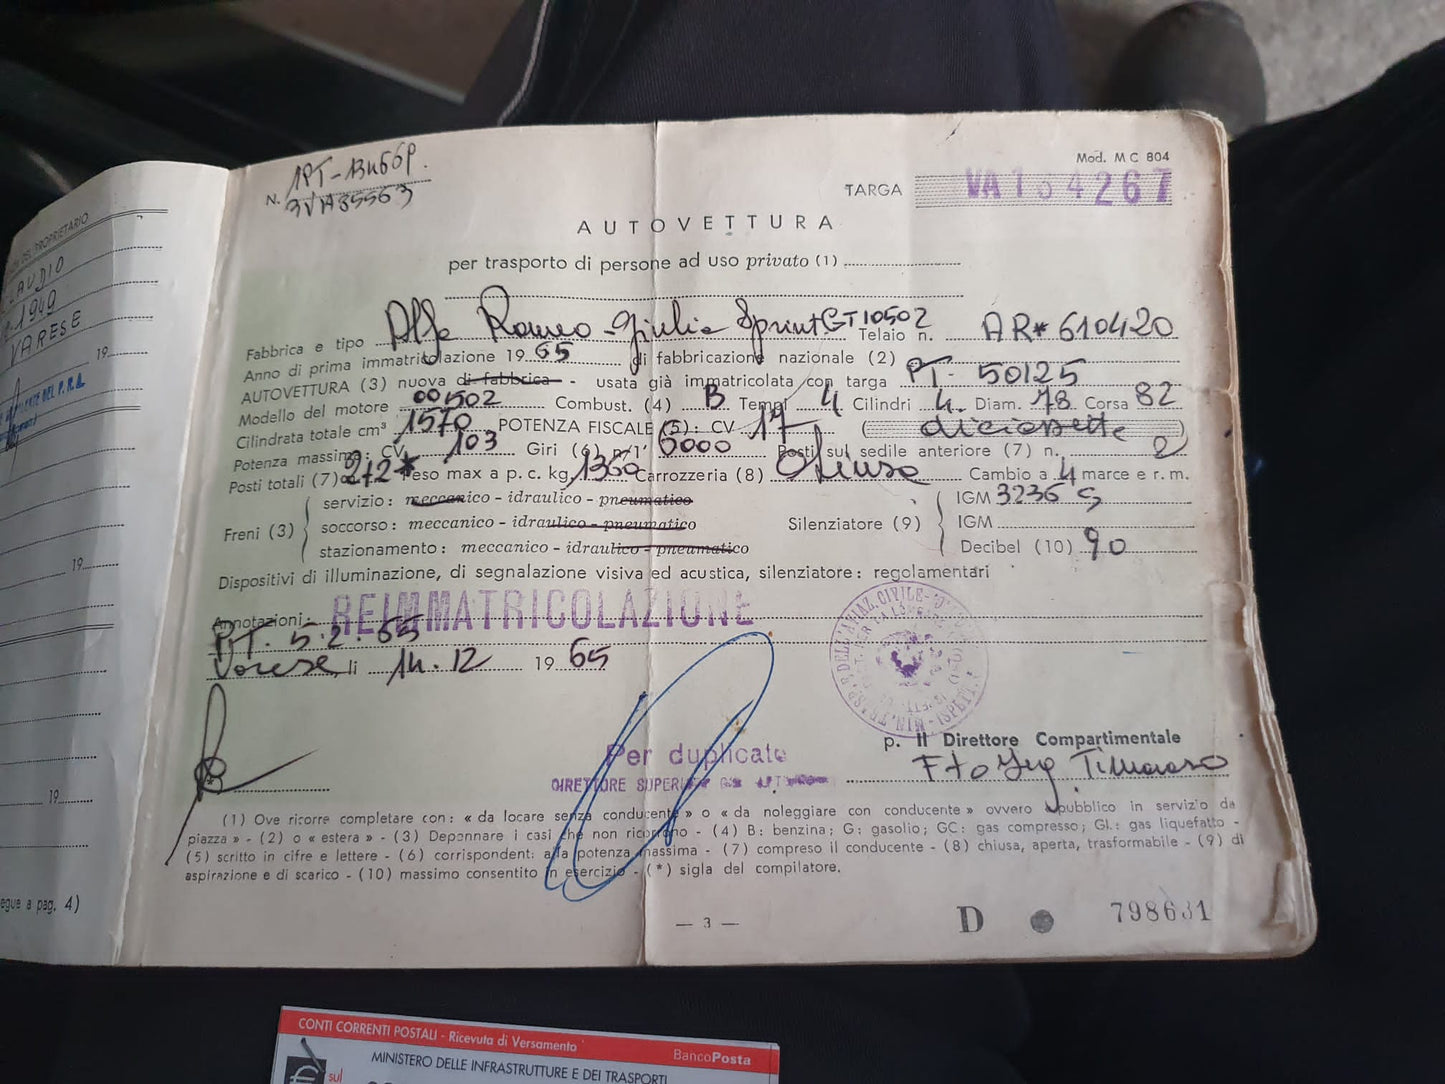 DEL PROPRIETARIO
LAUDIO
1949
VARESE
19
DEL P. R. A.
19
19
egue a pag. 4)
Mod. M C 804
N. 1PT-
TARGA VA 134267
AUTOVETTURA
per trasporto di persone ad uso privato (1)
Fabbrica e tipo Alfa Romeo - Giulia Sprint GT 10502 Telaio n. AR* 610420
Anno di prima immatricolazione 19 65 di fabbricazione nazionale (2)
AUTOVETTURA (3) nuova di fabbrica - usata già immatricolata con targa PT- 50125
Modello del motore 00502 Combust. (4) B Tempi 4 Cilindri 4. Diam. 78 Corsa 82
Cilindrata totale cm³ 1570 POTENZA FISCALE (5): CV 17 ( diciassette )
Potenza massima: CV 103 Giri (6) n/1' 6000 Posti sul sedile anteriore (7) n. 2
Posti totali (7) 2+2* Peso max a p. c. kg. 1360 Carrozzeria (8) chiusa Cambio a 4 marce e r. m.
Freni (3)
servizio: meccanico - idraulico - pneumatico
soccorso: meccanico - idraulico - pneumatico
stazionamento: meccanico - idraulico - pneumatico
Silenziatore (9)
IGM 3236 S
IGM
Decibel (10) 90
Dispositivi di illuminazione, di segnalazione visiva ed acustica, silenziatore: regolamentari
Annotazioni: REIMMATRICOLAZIONE
PT. 5.2.65
Varese, li 14.12 19 65
Per duplicato
DIRETTORE SUPERI
p. Il Direttore Compartimentale
F/to Ing
(1) Ove ricorre completare con: « da locare senza conducente » o « da noleggiare con conducente » ovvero « pubblico in servizio da
piazza » - (2) o « estera » - (3) Depennare i casi che non ricorrono - (4) B: benzina; G: gasolio; GC: gas compresso; GL: gas liquefatto -
(5) scritto in cifre e lettere - (6) corrispondenti alla potenza massima - (7) compreso il conducente - (8) chiusa, aperta, trasformabile - (9) di
aspirazione e di scarico - (10) massimo consentito in esercizio - (*) sigla del compilatore.
— 3 —
D 798631
CONTI CORRENTI POSTALI - Ricevuta di Versamento BancoPosta
MINISTERO DELLE INFRASTRUTTURE E DEI TRASPORTI
sul